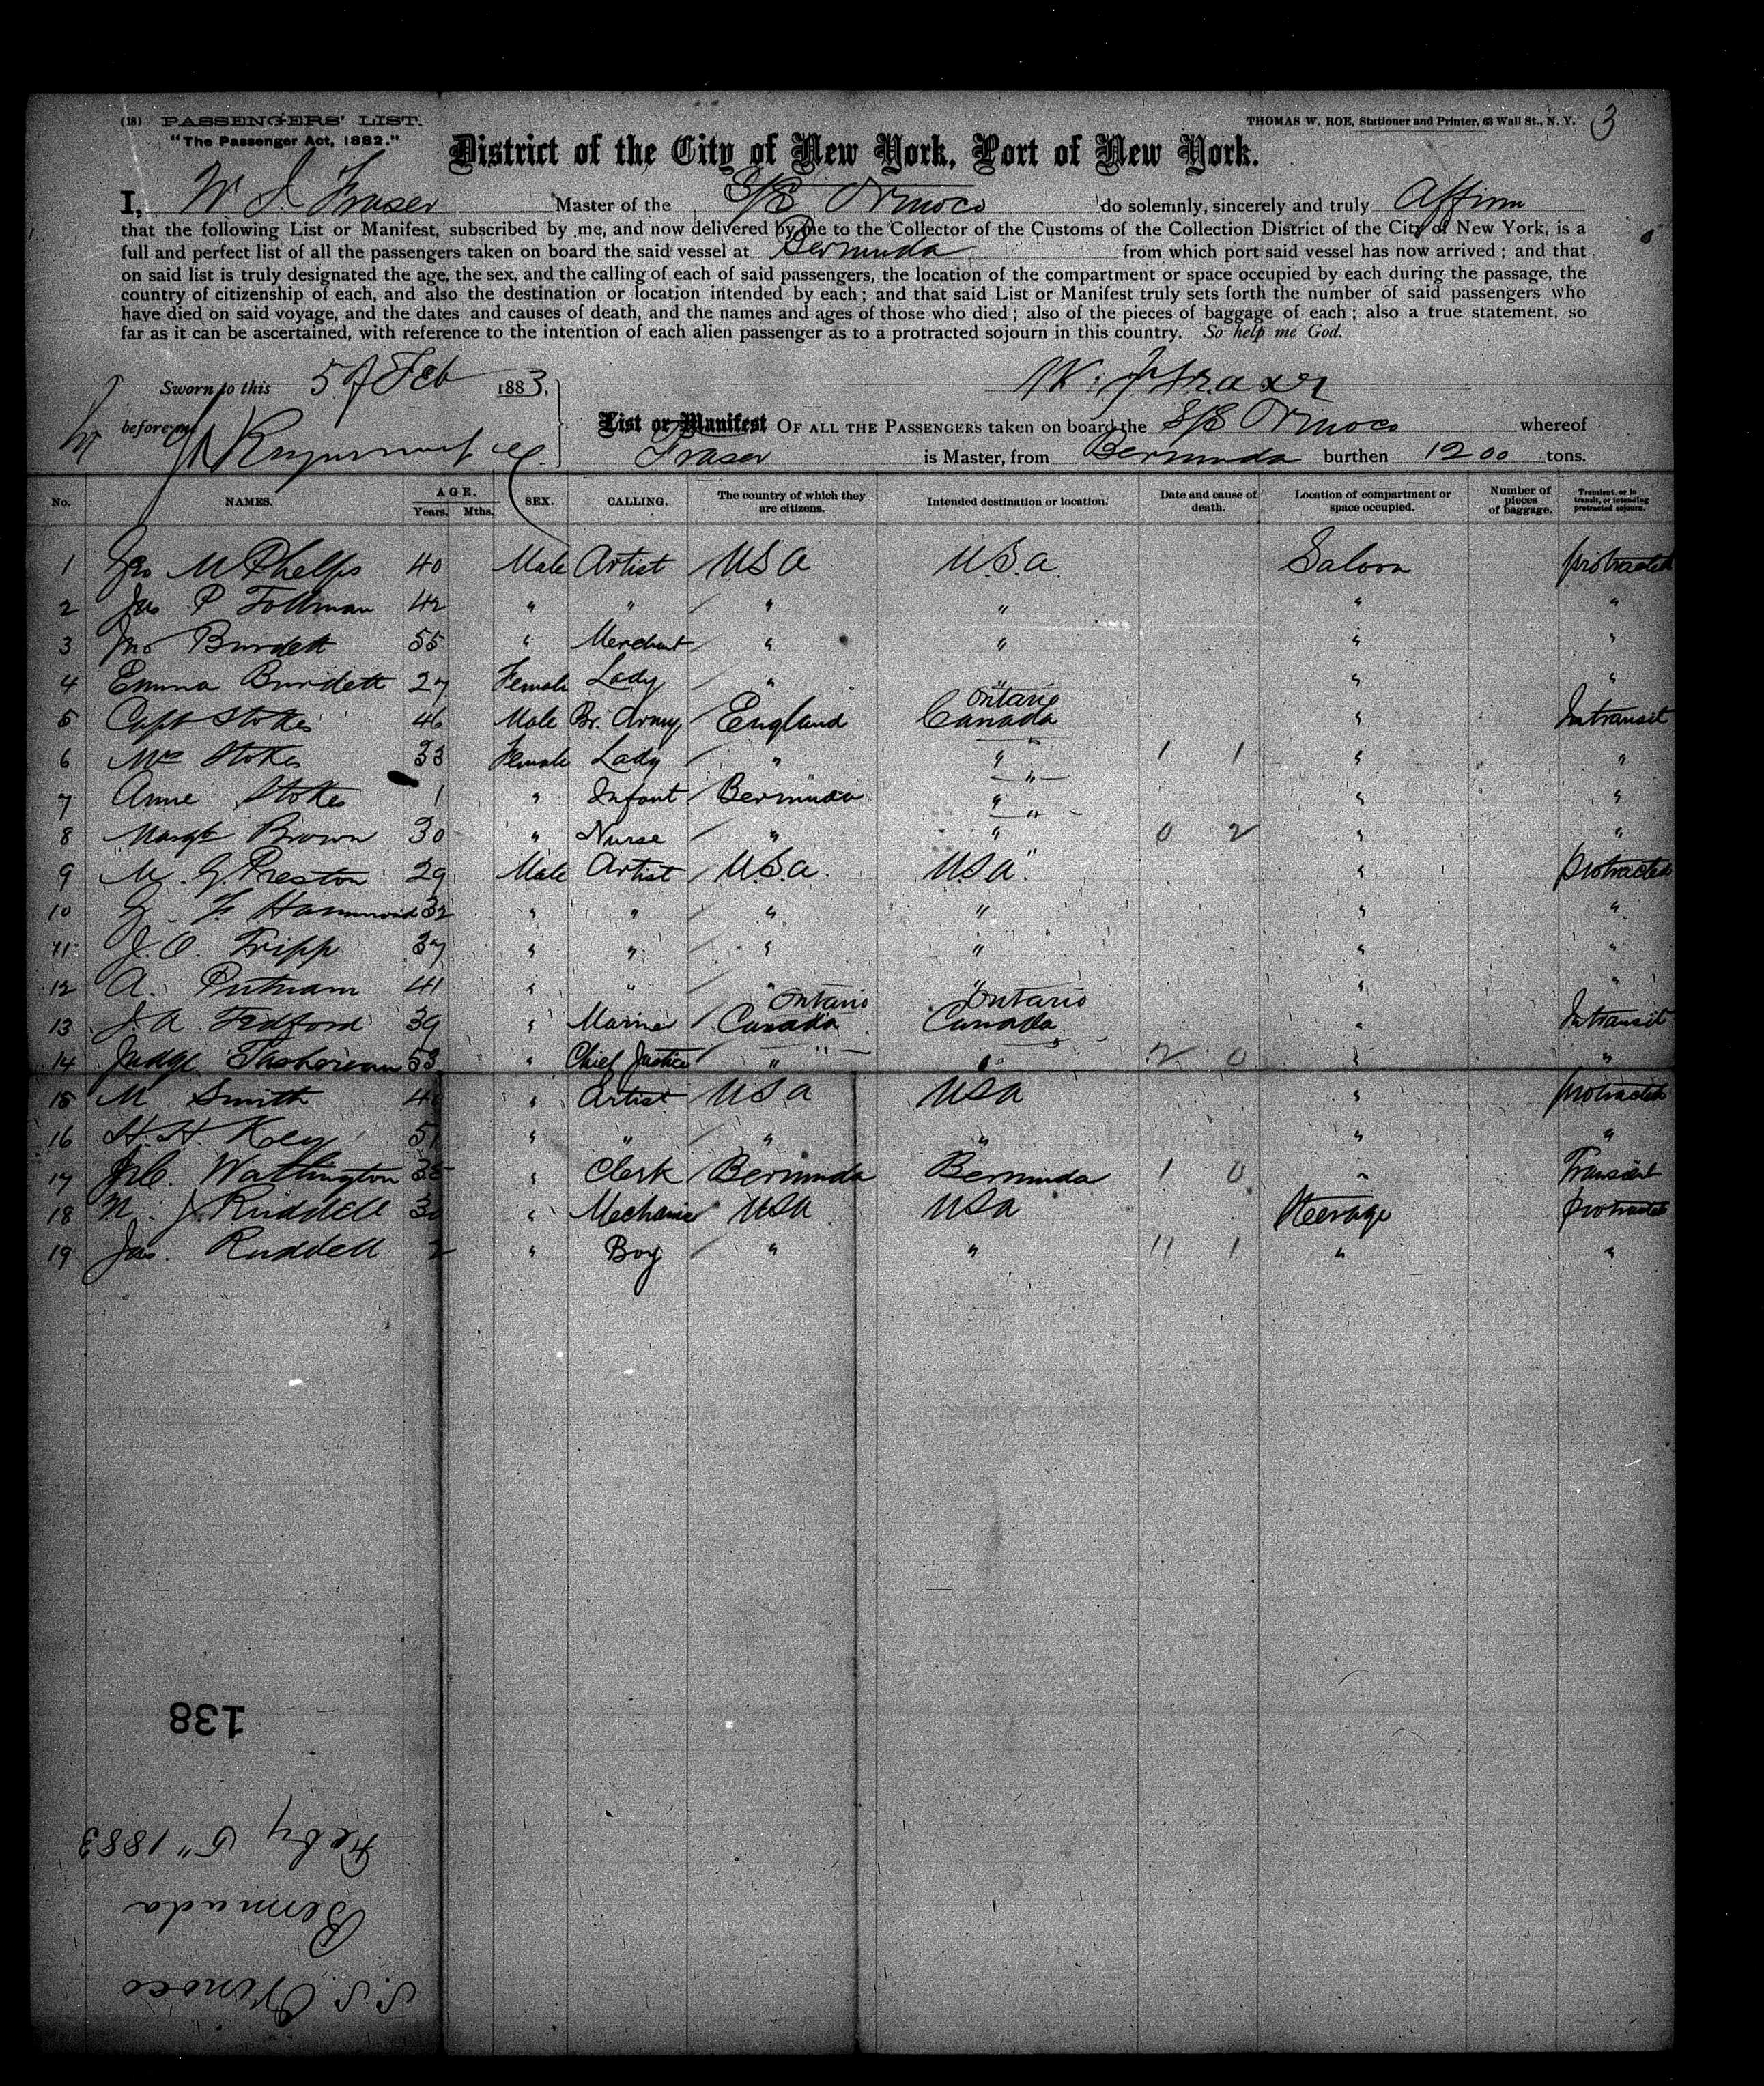 (18) PASSENGERS' LIST.
"The Passenger Act, 1882."
THOMAS W. ROE, Stationer and Printer, 63 Wall St., N. Y.
3
District of the City of New York, Port of New York.
I, W J Fraser Master of the S/S Orinoco do solemnly, sincerely and truly Affirm
that the following List or Manifest, subscribed by me, and now delivered by me to the Collector of the Customs of the Collection District of the City of New York, is a
full and perfect list of all the passengers taken on board the said vessel at Bermuda from which port said vessel has now arrived; and that
on said list is truly designated the age, the sex, and the calling of each of said passengers, the location of the compartment or space occupied by each during the passage, the
country of citizenship of each, and also the destination or location intended by each; and that said List or Manifest truly sets forth the number of said passengers who
have died on said voyage, and the dates and causes of death, and the names and ages of those who died; also of the pieces of baggage of each; also a true statement, so
far as it can be ascertained, with reference to the intention of each alien passenger as to a protracted sojourn in this country. So help me God.
Sworn to this 5 of Feb 1883, W. J. Fraser
before me
List or Manifest OF ALL THE PASSENGERS taken on board the S/S Orinoco whereof
Fraser is Master, from Bermuda burthen 1200 tons.
No. NAMES. AGE. Years. Mths. SEX. CALLING. The country of which they are citizens. Intended destination or location. Date and cause of death. Location of compartment or space occupied. Number of pieces of baggage. Transient, or in transit, or intending protracted sojourn.
1 Geo M Phelps 40 Male Artist USA U.S.a. Saloon protracted
2 Jas P Tollman 42 " " " " " "
3 Jno Burdett 55 " Merchant " " " "
4 Emma Burdett 27 Female Lady " " " "
5 Capt Stokes 46 Male Br. Army England Ontario Canada " Intransit
6 Mrs Stokes 33 Female Lady " " 1 1 " "
7 Anne Stokes 1 " Infant Bermuda " " "
8 Margt Brown 30 " Nurse " " 0 2 " "
9 M. G Preston 29 Male Artist U.S.a. USA " protracted
10 G. F Hammond 32 " " " " " "
11 J. O. Tripp 37 " " " " " "
12 A. Putnam 41 " " " " " "
13 J. A Tedford 39 " Mariner Ontario Canada Ontario Canada " Intransit
14 Judge 53 " Chief Justice " " 2 0 " "
15 M Smith " Artist USA USA " protracted
16 H. H. Koey " " " " " "
17 Watlington " Clerk Bermuda Bermuda 1 0 " Transient
18 J. Ruddell " Mechanic USA USA Steerage protracted
19 Jas. Ruddell " Boy " " 11 1 " "
138
S. S. Orinoco
Bermuda
Feby 5" 1883